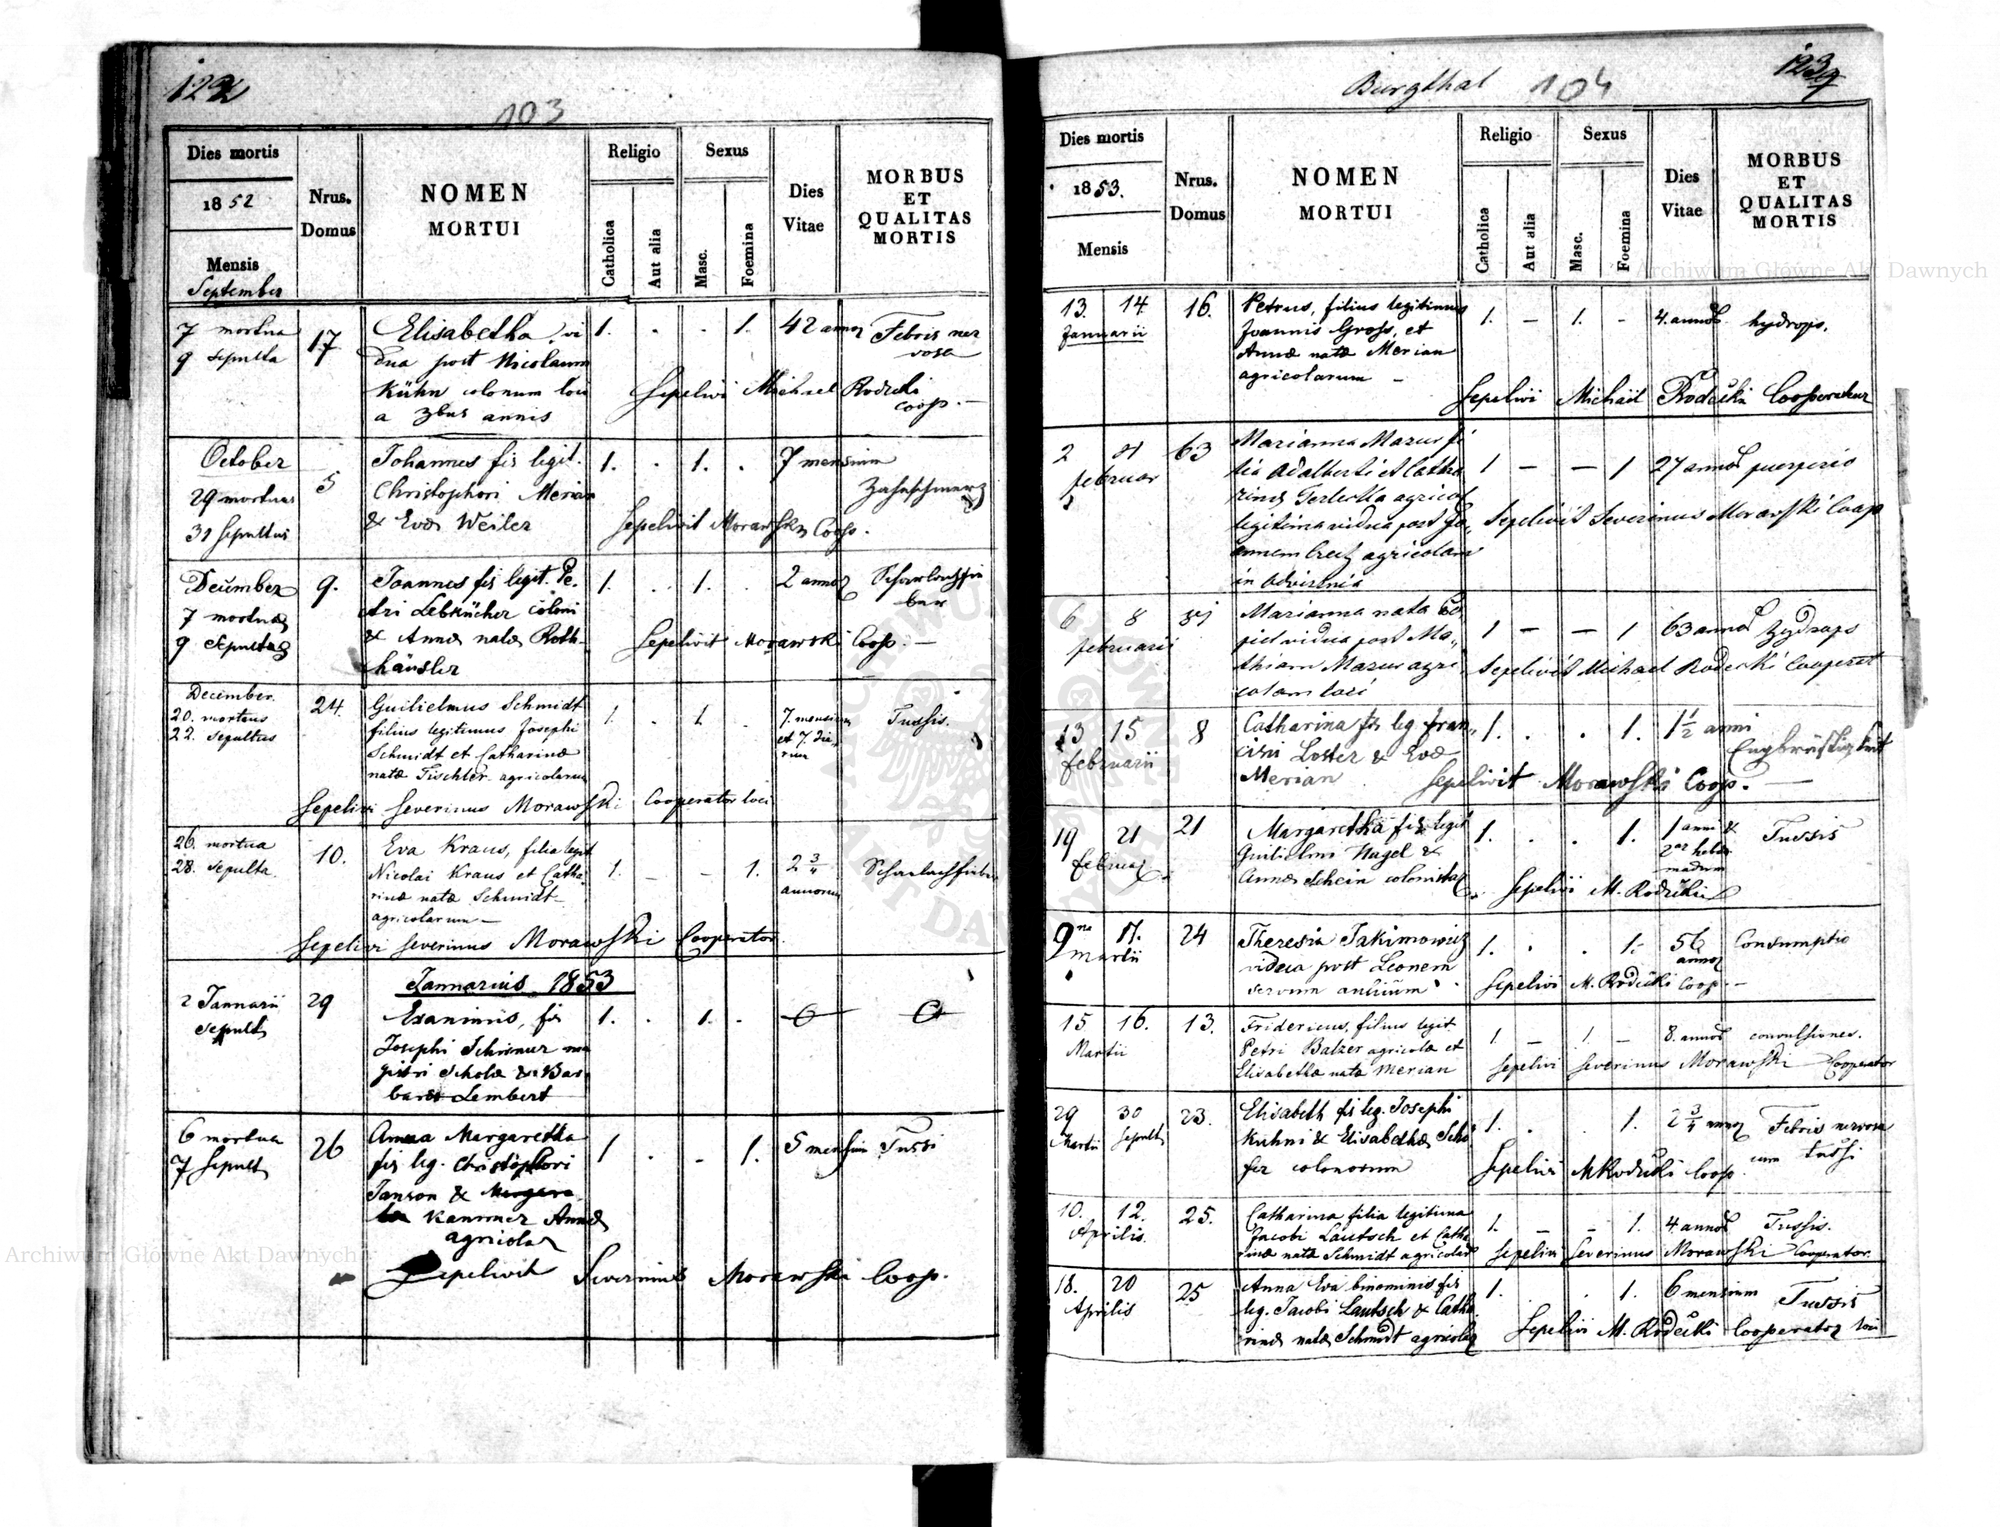 122
103
Dies mortis
1852
Mensis
September
Nrus.
Domus
NOMEN
MORTUI
Religio
Catholica
Aut alia
Sexus
Masc.
Foemina
Dies
Vitae
MORBUS
ET
QUALITAS
MORTIS
7 mortua
9 sepulta
17
Elisabetha, vi
dua post Nicolaum
Kühn colonum loci
a 3bus annis
1. . . 1.
42 annor
Febris ner
vosa
Sepelivi Michael Rodecki
coop. —
October
29 mortuus
31 sepultus
5
Johannes fis legit.
Christophori Merian
& Evae Weiler
1. . 1. .
7 mensium
Zahnschmerz
Sepelivit Morawski Coop.
December
7 mortuus
9 sepultus
9.
Joannes fis legit. Pe-
tri Lebkücher coloni
& Annae natae Roth-
häusler
1. . 1. .
2 annor
Scharlachfie
ber
Sepelivit Morawski Coop. —
December.
20. mortuus
22. sepultus
24.
Guilielmus Schmidt
filius legitimus Josephi
Schmidt et Catharinae
natae Tischler agricolarum
1. . 1. .
7. mensium
et 7. die-
rum
Tussis.
Sepelivi Severinus Morawski Cooperator loci
26. mortua
28. sepulta
10.
Eva Kraus, filia legit
Nicolai Kraus et Catha-
rinae natae Schmidt
agricolarum —
1. – – 1.
2 3/4
annorum
Scharlachfieber
Sepelivi Severinus Morawski Cooperator.
Januarius 1853
2 Januarii
sepult
29
Exanimis, fis
Josephi Schirmer ma
gistri scholae & Bar
barae Lembert
1. . 1. .
6 mortua
7 sepult
26
Anna Margaretha
fis leg. Christophori
Janson &
Kammer Annae
agricolar
1 . . 1.
5 mensium
Tussi
Sepelivit Severinus Morawski Coop.
Burgthal
104
123
Dies mortis
1853.
Mensis
Nrus.
Domus
NOMEN
MORTUI
Religio
Catholica
Aut alia
Sexus
Masc.
Foemina
Dies
Vitae
MORBUS
ET
QUALITAS
MORTIS
13 14
Januarii
16.
Petrus, filius legitimus
Joannis Gross, et
Annae natae Merian
agricolarum –
1. – 1. –
4. annor
hydrops.
Sepelivi Michäil Rodecki Cooperator
2
februar
63
Marianna Mazur fi
lia Adalberti et Catha
rinae Terlecka agricol
legitima vidua post Jo„
annem agricolam
in
1 – – 1
27 annor
puerperio
Sepelivit Severinus Morawski Coop
6 8
februarii
Marianna nata
vidua post Ma„
thiam Mazur agri„
colam loci
1 – – 1
63 annor
Zydrops
Sepelivit Michael Rodecki Cooperat
13 15
februarii
8
Catharina fis leg fran„
cisci Lotter & Evae
Merian
1. . . 1.
1 1/2 anni
Engbrüstigkeit
Sepelivit Morawski Coop. —
19 21
februar.
21
Margaretha fis legit
Guilielmi Nagel &
Annae Schein colonistar
1. . . 1.
1 anni &
2ar hebdo
madum
Tussis
Sepelivi M. Rodecki
9na 11.
martii
24
Theresia Jakimowicz
vidua post Leonem
servum
1. . . 1.
56
annor
Consumptio
Sepelivi M. Rodecki Coop. —
15 16.
Martii
13.
Fridericus, filius legit
Petri Balzer agricolae et
Elisabethae natae Merian
1. – 1. –
8. annor
convulsiones.
Sepelivi Severinus Morawski Cooperator
29 30
Martii sepult
23.
Elisabeth fis leg. Josephi
Kuhni & Elisabethae Schä
fer colonorum
1. . . 1.
2 3/4 annor
Febris nervosa
cum tussi
Sepelivi M Rodecki Coop.
10. 12.
Aprilis.
25.
Catharina filia legitima
Jacobi Lautsch et Catha
rinae natae Schmidt agricolar
1. – – 1.
4 annor
Tussis.
Sepelivi Severinus Morawski Cooperator.
18. 20
Aprilis
25
Anna Eva binominis fis
leg. Jacobi Lautsch & Catha
rinae natae Schmidt agricolar
1. . . 1.
6 mensium
Tussis
Sepelivi M. Rodecki Cooperator loci
Archiwum Główne Akt Dawnych
Archiwum Główne Akt Dawnych